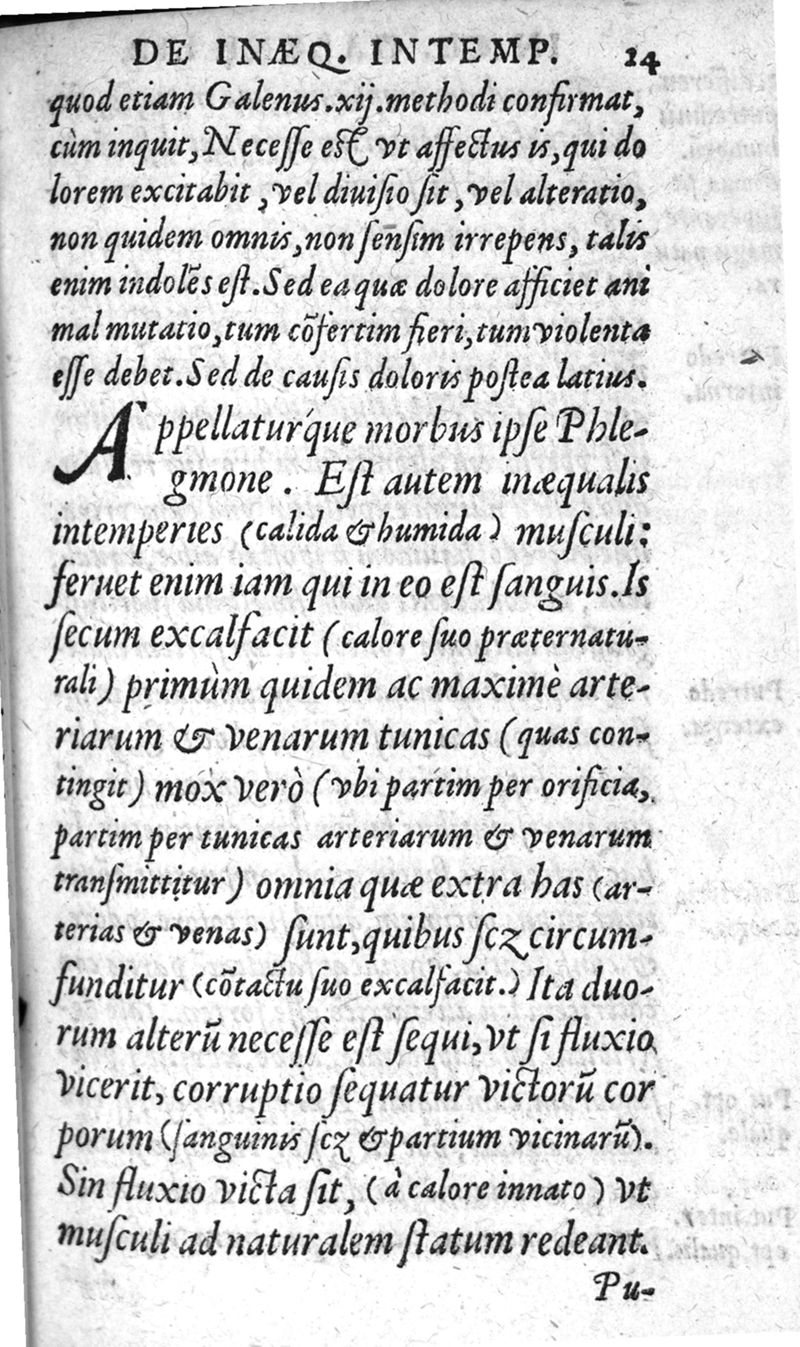 DE INÆQ. INTEMP. 24
quod etiam Galenus.xij.methodi confirmat,
cùm inquit,Necesse est vt affectus is,qui do
lorem excitabit ,vel diuisio sit ,vel alteratio,
non quidem omnis,non sensim irrepens, talis
enim indolẽs est.Sed ea quæ dolore afficiet ani
mal mutatio,tum cõfertim fieri,tum violenta
esse debet.Sed de causis doloris postea latius.
Appellaturq́ue morbus ipse Phle-
gmone . Est autem inæqualis
intemperies (calida & humida) musculi:
feruet enim iam qui in eo est sanguis.Is
secum excalfacit (calore suo præternatu-
rali) primùm quidem ac maximè arte-
riarum & venarum tunicas (quas con-
tingit) mox verò (vbi partim per orificia,
partim per tunicas arteriarum & venarum
transmittitur) omnia quæ extra has (ar-
terias & venas) sunt,quibus scꝫ circum-
funditur (cõtactu suo excalfacit.) Ita duo-
rum alterũ necesse est sequi,vt si fluxio
vicerit, corruptio sequatur victorũ cor
porum (sanguinis scꝫ & partium vicinarũ).
Sin fluxio victa sit, (à calore innato) vt
musculi ad naturalem statum redeant.
Pu-